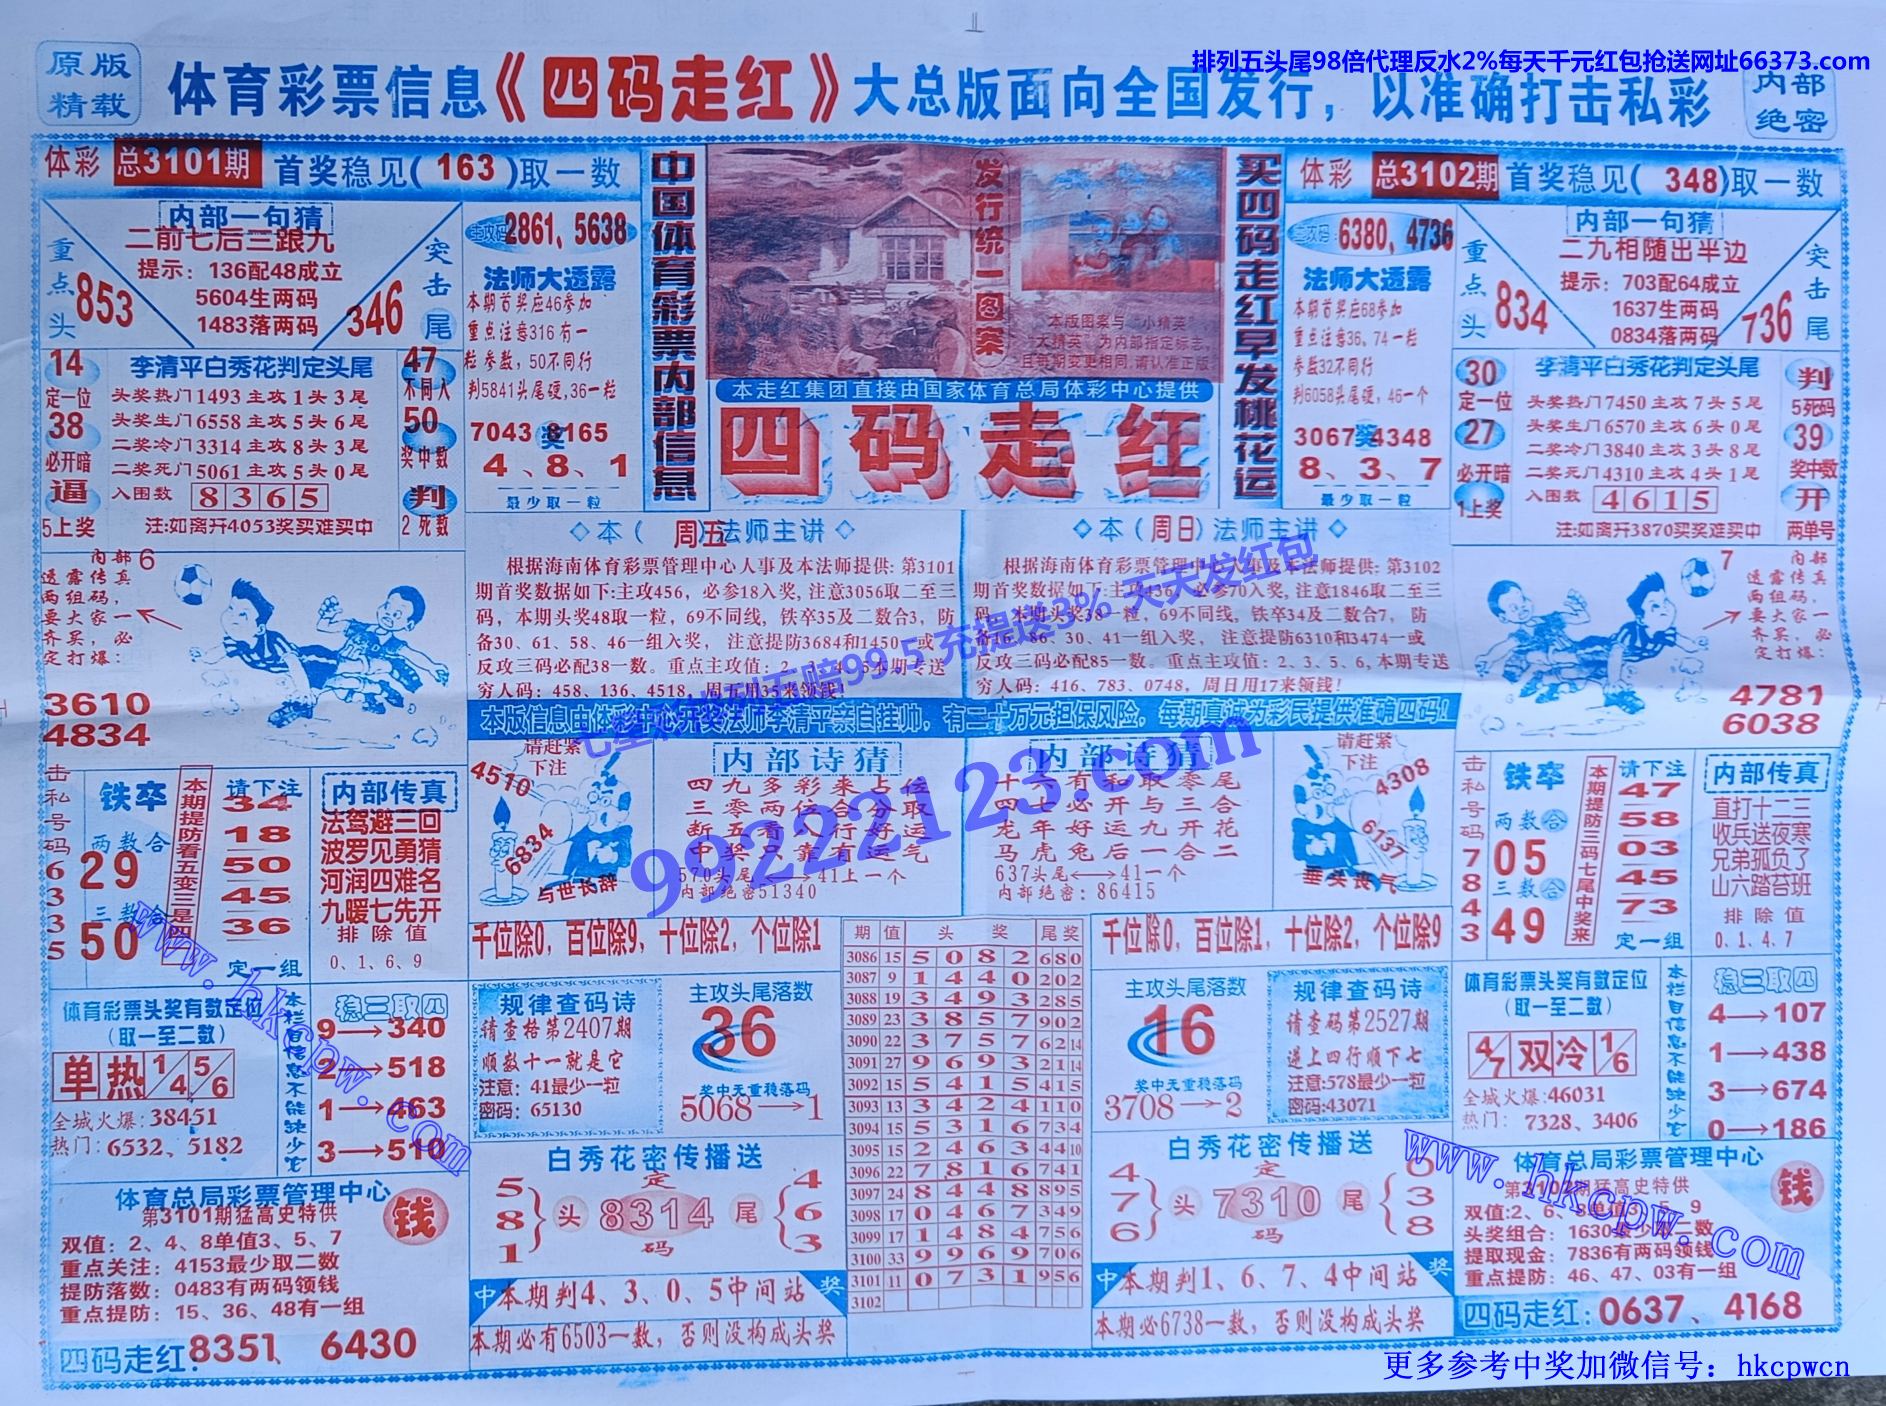 排列五头尾98倍代理反水2%每天千元红包抢送网址66373.com
原版
精载
体育彩票信息《四码走红》大总版面向全国发行，以准确打击私彩
内部
绝密
体彩 总3101期 首奖稳见(163)取一数
内部一句猜
二前七后三跟九
提示：136配48成立
5604生两码
1483落两码
重点头
853
346
突击尾
主攻码 2861、5638
法师大透露
本期首奖应46参加
重点注意316有一
粒参数，50不同行
判5841头尾硬,36一粒
7043奖8165
4、8、1
最少取一粒
14
定一位
38
必开暗
逼
5上奖
李清平白秀花判定头尾
头奖热门1493主攻1头3尾
头奖生门6558主攻5头6尾
二奖冷门3314主攻8头3尾
二奖死门5061主攻5头0尾
入围数 8365
注:如离开4053奖买难买中
47
不同入
50
奖中数
判
2死数
中国体育彩票内部信息
发行统一图案
本版图案与“小精英”
“大精英”为内部指定标志
且每期变更相同,请认准正版
本走红集团直接由国家体育总局体彩中心提供
四码走红
买四码走红早发桃花运
体彩 总3102期 首奖稳见(348)取一数
主攻码：6380、4736
法师大透露
本期首奖应68参加
重点注意36、74一粒
参数32不同行
判6058头尾硬，46一个
3067奖4348
8、3、7
最少取一粒
内部一句猜
二九相随出半边
提示：703配64成立
1637生两码
0834落两码
重点头
834
736
突击尾
30
定一位
27
必开暗
1上奖
李清平白秀花判定头尾
头奖热门7450主攻7头5尾
头奖生门6570主攻6头0尾
二奖冷门3840主攻3头8尾
二奖死门4310主攻4头1尾
入围数 4615
注:如离开3870买奖难买中
判
5死码
39
奖中数
开
两单号
内部6
透露传真
两组码，
要大家一
齐买，必
定打爆：
3610
4834
◇本（周五）法师主讲◇
根据海南体育彩票管理中心人事及本法师提供：第3101
期首奖数据如下:主攻456，必参18入奖,注意3056取二至三
码，本期头奖48取一粒，69不同线,铁卒35及二数合3，防
备30、61、58、46一组入奖， 注意提防3684和1450一或
反攻三码必配38一数。重点主攻值：2、
5本期专送
穷人码：458、136、4518，周五用35来领钱!
◇本（周日）法师主讲◇
根据海南体育彩票管理中心人事及本法师提供：第3102
期首奖数据如下:主攻436，必参70入奖,注意1846取二至三
码，本期头奖38一粒，69不同线，铁卒34及二数合7，防
备16、86、30、41一组入奖，注意提防6310和3474一或
反攻三码必配85一数。重点主攻值：2、3、5、6,本期专送
穷人码：416、783、0748，周日用17来领钱!
7 内部
透露传真
两组码，
要大家一
齐买，必
定打爆：
4781
6038
七星彩排列五赔99.5 充提送3% 天天发红包
99222123.com
本版信息由体彩中心开奖法师李清平亲自挂帅，有二十万元担保风险，每期真诚为彩民提供准确四码！
击私号码63335
铁卒
两数合
29
三数合
50
本期提防看五变三是四一
请下注
34
18
50
45
36
定一组
内部传真
法驾避三回
波罗见勇猜
河润四难名
九暖七先开
排除值
0、1、6、9
请赶紧
下注
4510
6834
与世长辞
内部诗猜
四九多彩来占位
三零两位合分取
断五看八行好运
中奖只靠有运气
570头尾⟷41上一个
内部绝密51340
内部诗猜
十二有和取零尾
四七必开与三合
龙年好运九开花
马虎兔后一合二
637头尾⟷41一个
内部绝密：86415
请赶紧
下注
4308
6137
垂头丧气
击私号码77843
铁卒
两数合
05
三数合
49
本期提防三码七尾中奖来
请下注
47
58
03
45
73
定一组
内部传真
直打十二三
收兵送夜寒
兄弟孤负了
山六踏苔班
排除值
0、1、4、7
千位除0，百位除9，十位除2，个位除1
千位除0，百位除1，十位除2，个位除9
体育彩票头奖有数定位
(取一至二数)
单热 1/4 5/6
全城火爆:38451
热门：6532、5182
本栏自信息不能缺少它
稳三取四
9→340
2→518
1→463
3→510
规律查码诗
请查格第2407期
顺数十一就是它
注意：41最少一粒
密码：65130
主攻头尾落数
36
奖中无重稳落码
5068→1
期 值 头奖 尾奖
3086 15 5082 680
3087 9 1440 202
3088 19 3493 285
3089 23 3857 902
3090 22 3757 6214
3091 27 9693 2114
3092 15 5415 415
3093 13 3424 110
3094 15 5316 734
3095 15 2463 4410
3096 22 7816 741
3097 24 8448 895
3098 17 0467 349
3099 17 1484 756
3100 33 9969 706
3101 11 0731 956
3102
主攻头尾落数
16
奖中无重稳落码
3708→2
规律查码诗
请查码第2527期
送上四行顺下七
注意:578最少一粒
密码:43071
体育彩票头奖有数定位
(取一至二数)
4/7 双冷 1/6
全城火爆:46031
热门： 7328、3406
本栏自信息不能缺少它
稳三取四
4→107
1→438
3→674
0→186
白秀花密传播送
定
5 8 1 头 8314 尾 4 6 3
码
中 本期判4、3、0、5中间站 奖
本期必有6503一数，否则没构成头奖
白秀花密传播送
定
4 7 6 头 7310 尾 0 3 8
码
中 本期判1、6、7、4中间站 奖
本期必6738一数，否则没构成头奖
体育总局彩票管理中心
第3101期猛高史特供
钱
双值：2、4、8单值3、5、7
重点关注：4153最少取二数
提防落数：0483有两码领钱
重点提防：15、36、48有一组
四码走红：8351、6430
体育总局彩票管理中心
第3102期猛高史特供
钱
双值:2、6、8单值1、
9
头奖组合：1630最少取二数
提取现金：7836有两码领钱
重点提防：46、47、03有一组
四码走红：0637、4168
www.hkcpw.com
www.hkcpw.com
更多参考中奖加微信号：hkcpwcn